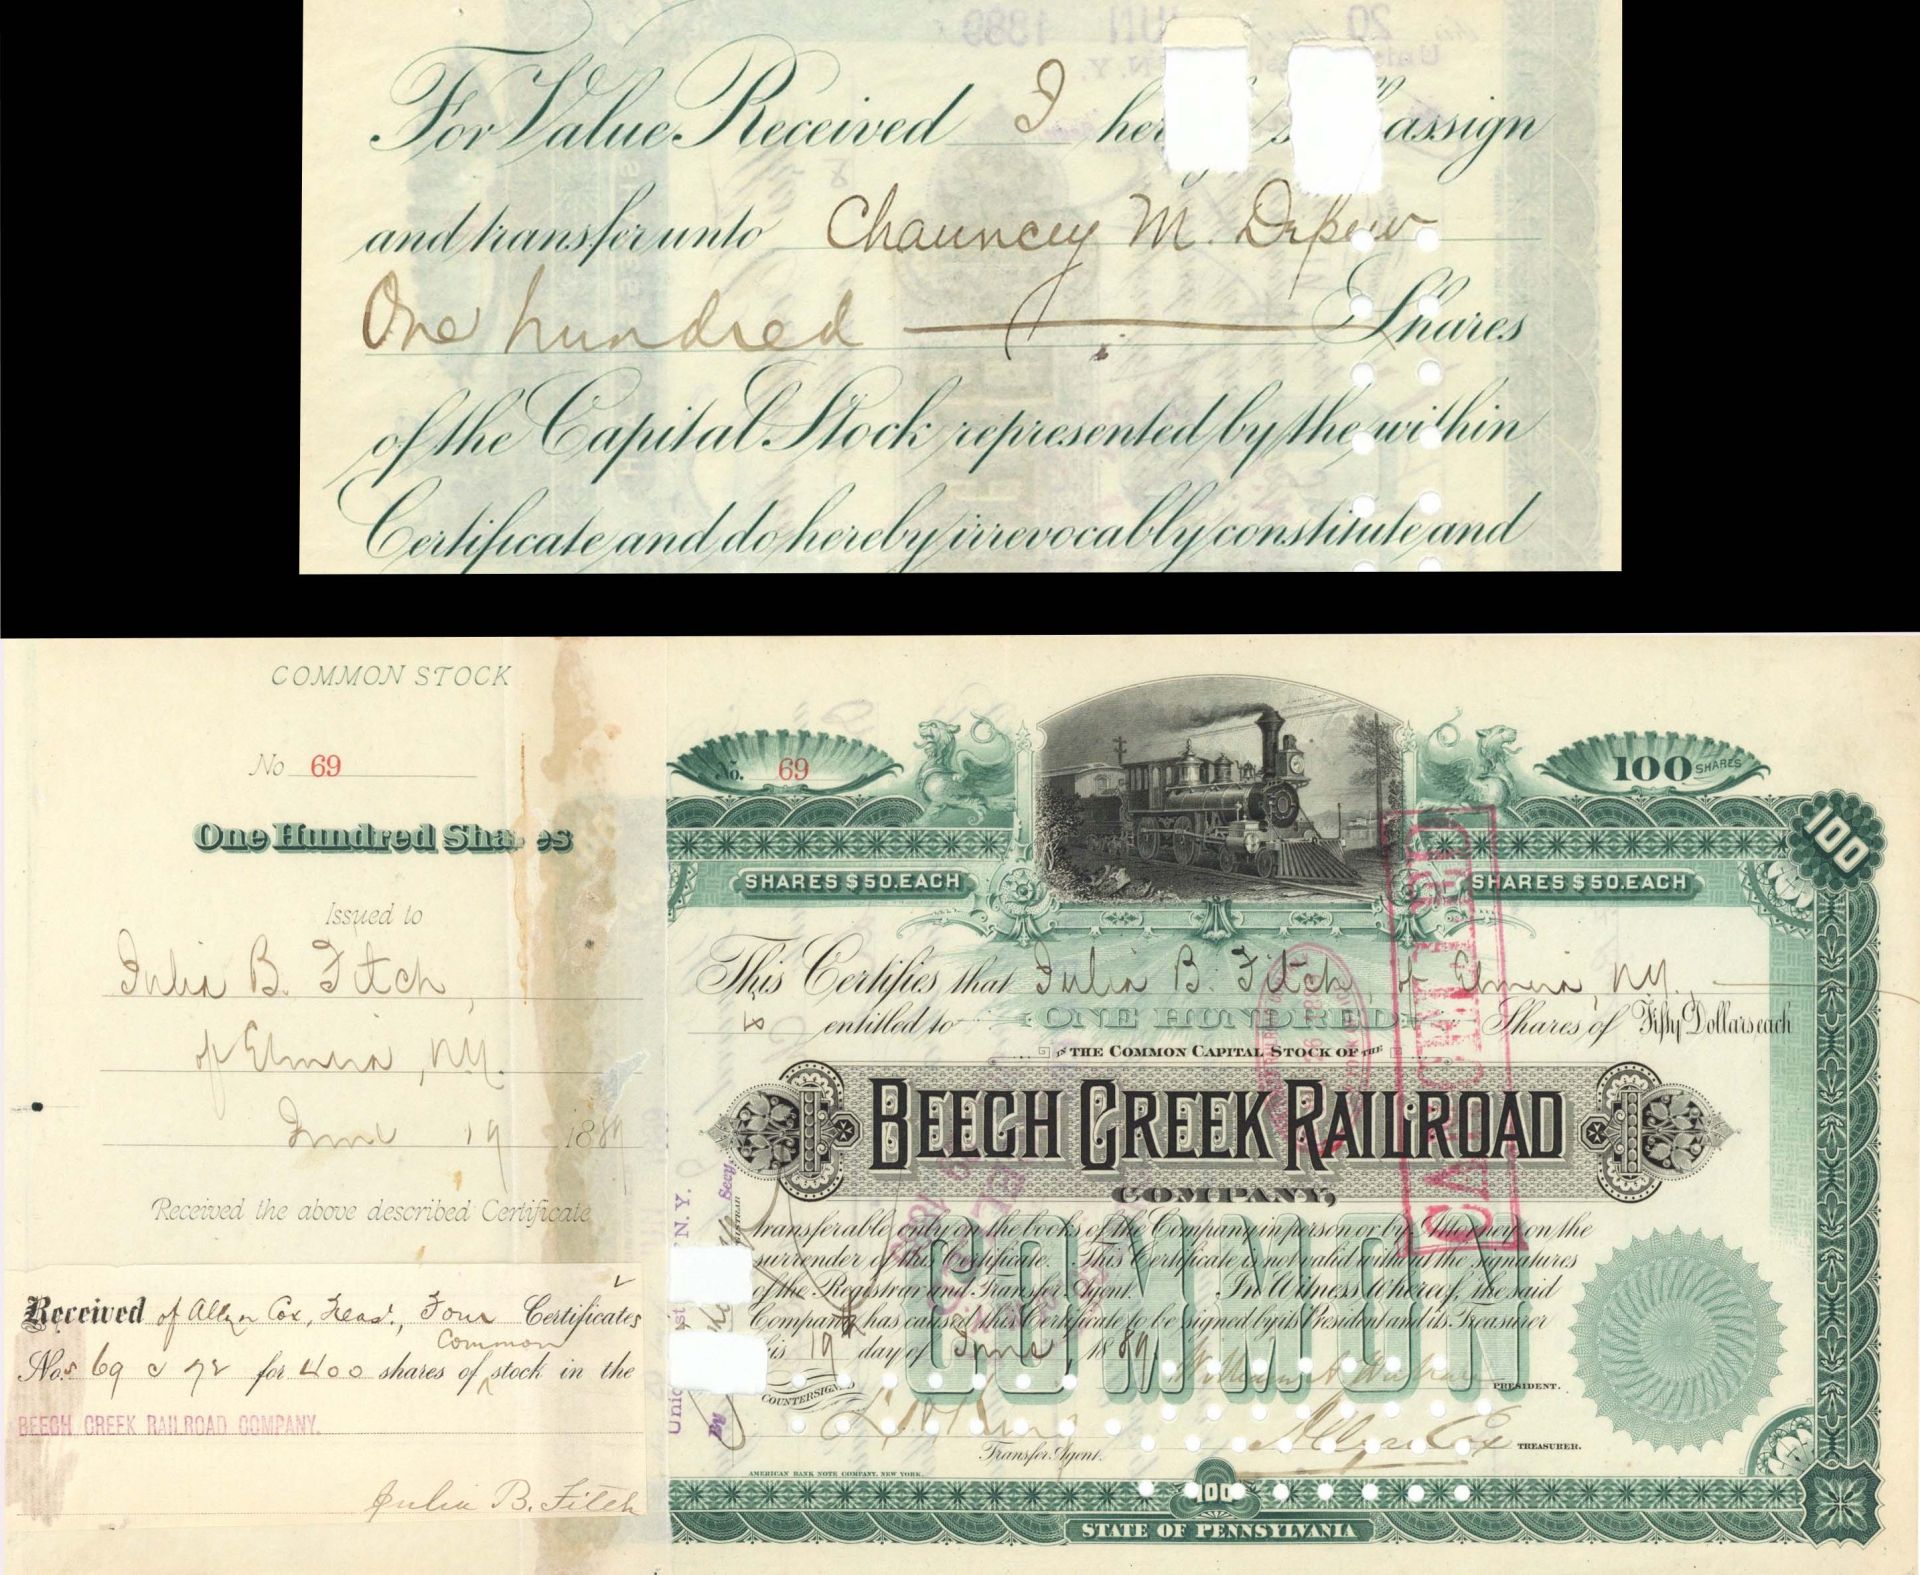 For Value Received I assign
and transfer unto Chauncey M. Depew
One hundred Shares
of the Capital Stock represented by the within
Certificate and do hereby irrevocably constitute and
COMMON STOCK
No 69
One Hundred Shares
Issued to
Julia B. Fitch,
of Elmira, N.Y.
June 19 1889
Received the above described Certificate
Received of Allyn Cox, Treas., Four Certificates
Common
Nos 69 @ 72 for 400 shares of ^ stock in the
BEECH CREEK RAILROAD COMPANY.
Julia B. Fitch
No. 69
100 SHARES
100
SHARES $50. EACH
SHARES $50. EACH
This Certifies that Julia B. Fitch, of Elmira, N.Y.,
is entitled to ONE HUNDRED Shares of Fifty Dollars each
IN THE COMMON CAPITAL STOCK OF THE
BEECH CREEK RAILROAD
COMPANY,
transferable only on the books of the Company in person or by Attorney on the
surrender of this Certificate. This Certificate is not valid without the signatures
of the Registrar and Transfer Agent. In Witness whereof, the said
Company has caused this Certificate to be signed by its President and its Treasurer
this 19 day of June, 1889.
COMMON
CANCELLED
PRESIDENT.
COUNTERSIGNED
Allyn Cox TREASURER.
Transfer Agent.
AMERICAN BANK NOTE COMPANY, NEW YORK.
100
STATE OF PENNSYLVANIA